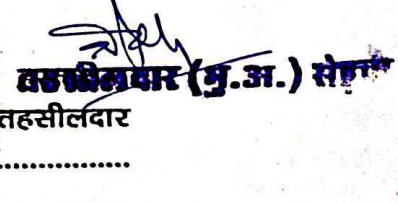 तहसीलदार (मु.अ.)
तहसीलदार
..................